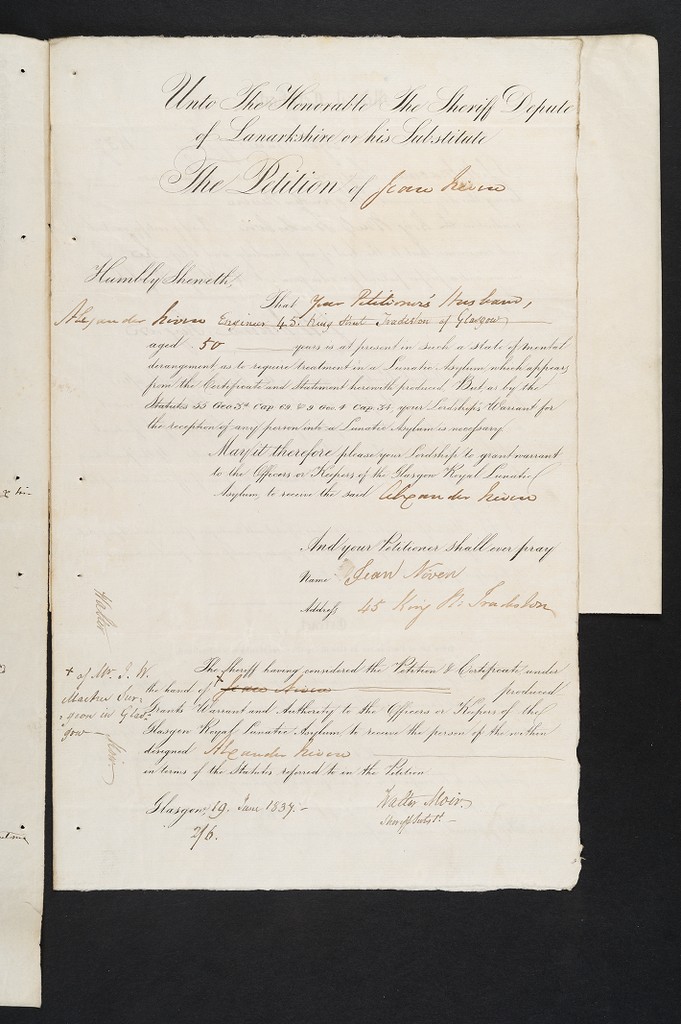 Unto The Honorable The Sheriff Depute
of Lanarkshire or his Substitute
The Petition of Jean Niven
Humbly Sheweth,
That Your Petitioner's Husband,
Alexander Niven Engineer 45 King Street Tradeston of Glasgow
aged 50 years is at present in such a state of mental
derangement as to require treatment in a Lunatic Asylum, which appears
from the Certificate and Statement herewith produced. But as by the
Statutes 55 Geo 3d Cap 69 & 9 Geo. 4 Cap. 34, your Lordship's Warrant for
the reception of any person into a Lunatic Asylum is necessary
May it therefore please your Lordship to grant warrant
to the Officers or Keepers of the Glasgow Royal Lunatic
Asylum, to receive the said Alexander Niven
And your Petitioner shall ever pray
Name Jean Niven
Address 45 King St. Tradeston
The Sheriff having considered the Petition & Certificate under
the hand of + Jean Niven produced
Grants Warrant and Authority to the Officers or Keepers of the
Glasgow Royal Lunatic Asylum to receive the person of the within
designed Alexander Niven
in terms of the Statutes referred to in the Petition
+ of Mr. J. W.
Sur-
geon in Glas-
gow
Walter
Moir
Glasgow, 19 June 1837.-
2/6.
Walter Moir
Sheriff Subst.